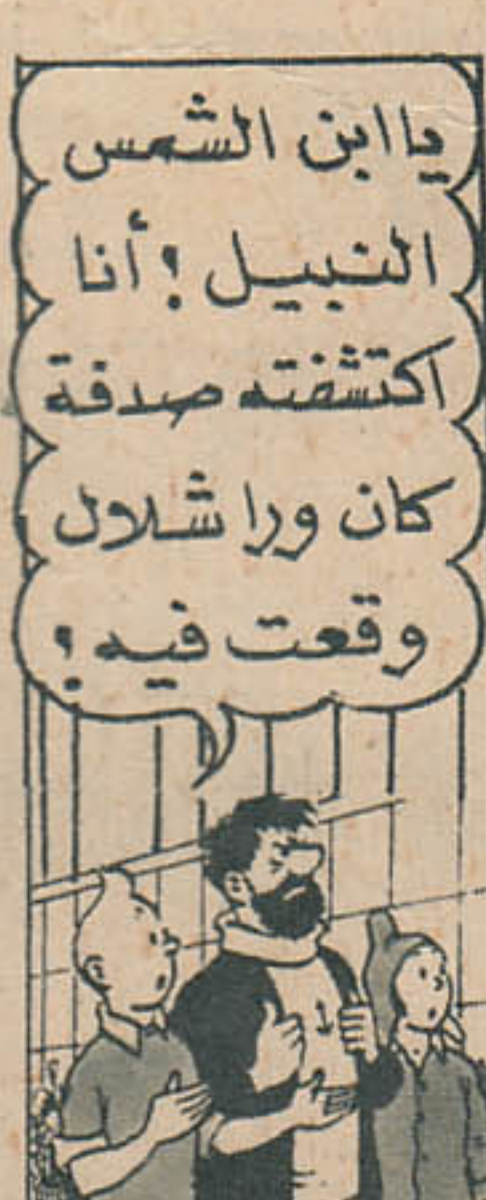 يا ابن الشمس
النبيل ؟ أنا
اكتشفته صدفة
كان ورا شلال
وقعت فيه ؟